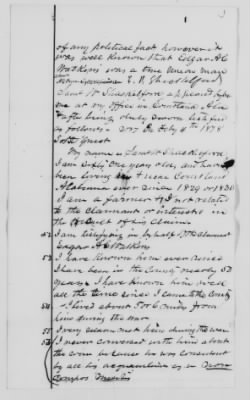 of any political fact however it
was well known that Edgar A C
Watkins was a true Union man
Lane W Shackelford appeared before
me at my office in Courtland Ala
& after being duly sworn testified
as follows on July 11th 1878
My name is Shackelford
I am sixty one years old, and have
been living near Courtland
Alabama ever since 1829 or 1830
I am a farmer & not related
to the claimant or interested in
the result of his claim
I am testifying in behalf of claimant
Edgar A C Watkins
I have known him ever since
I have been in the County nearly 50
years I have known him well
all the time since I came to the County
I lived about 5 or 6 miles from
him during the war
I very seldom met him during the war
I never conversed with him about
the war because he was considered
by all his acquaintances as a non
compos mentis